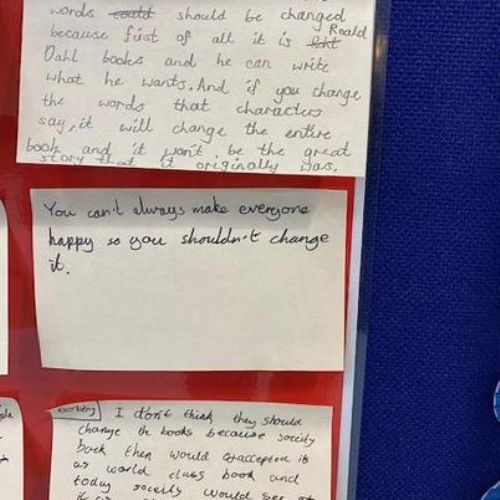 words could should be changed
because first of all it is Roald
Dahl books and he can write
what he wants. And if you change
the words that characters
say, it will change the entire
book and it won't be the great
story that it originally was.
You can't always make everyone
happy so you shouldn't change
it.
I don't think they should
change th books because soceity
back then would accepted it
as world class book and
today soceity would see